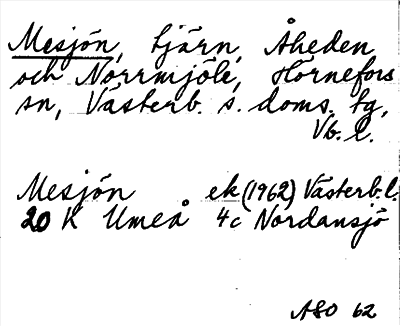 Mesjön, tjärn, Åheden
och Norrmjöle, Hörnefors
sn, Västerb. s. doms. tg,
Vb. l.
Mesjön ek (1962) Västerb. l.
20 K Umeå 4c Nordansjö
ASO 62